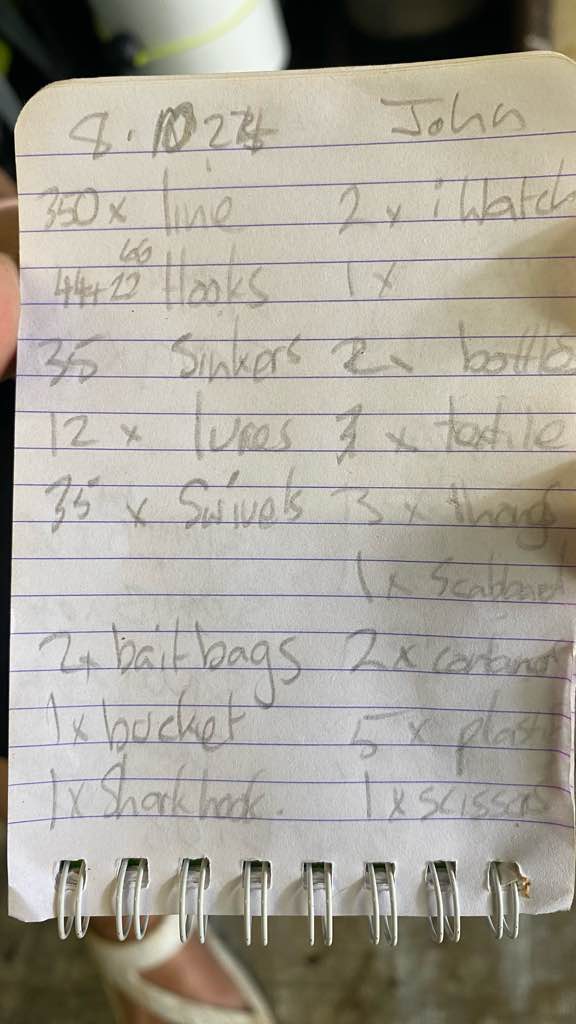 8. 10 24 John
350 x line 2 x iWatch
66
44+22 Hooks 1 x
35 Sinkers 2x bottle
12 x lures 3 x textile
35 x Swivels 3 x thongs
1 x
2x bait bags 2 x
1x bucket 5 x plastic
1x Shark hook. 1 x scissors